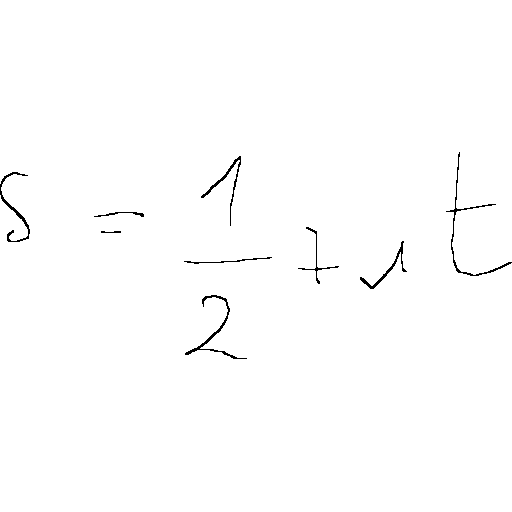 s = \frac{1}{2} + u t